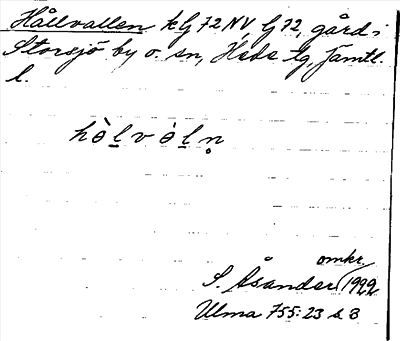 Hållvallen kG 72 NV, G 72, gård i
Storsjö by o. sn, Heds tg, Jämtl.
l.
hòl̲vòl̲n̥
omkr.
S. Åsander 1922
Ulma 755:23 s. 8